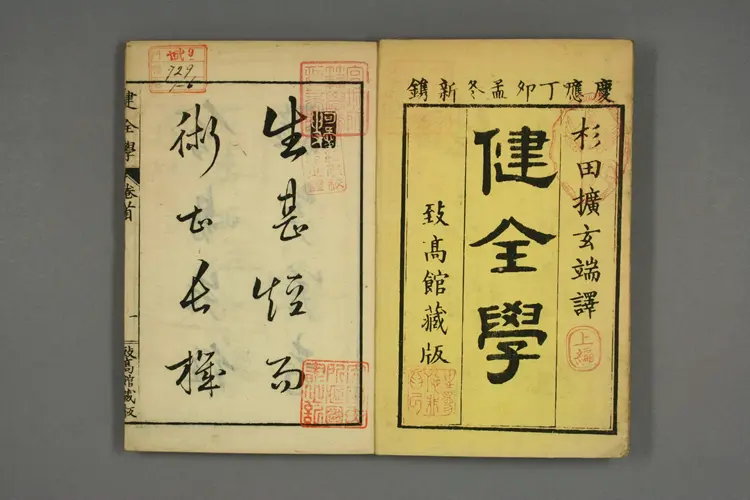 慶應丁卯孟冬新鐫
杉田擴玄端譯
上編
健全學
致高館藏版
生甚短而
術甚長機
健全學
卷首
一
致高館藏版
729
1-6